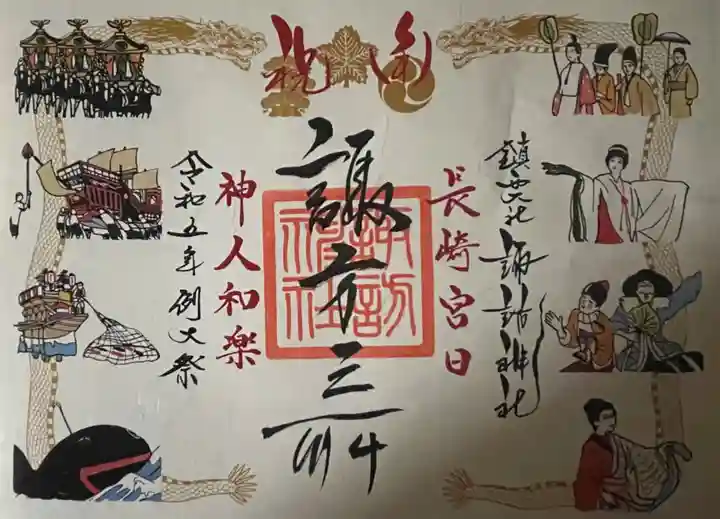 奉祝
鎮西大社 諏訪神社
長崎宮日
諏方三所
諏訪
神社
神人和楽
令和五年例大祭